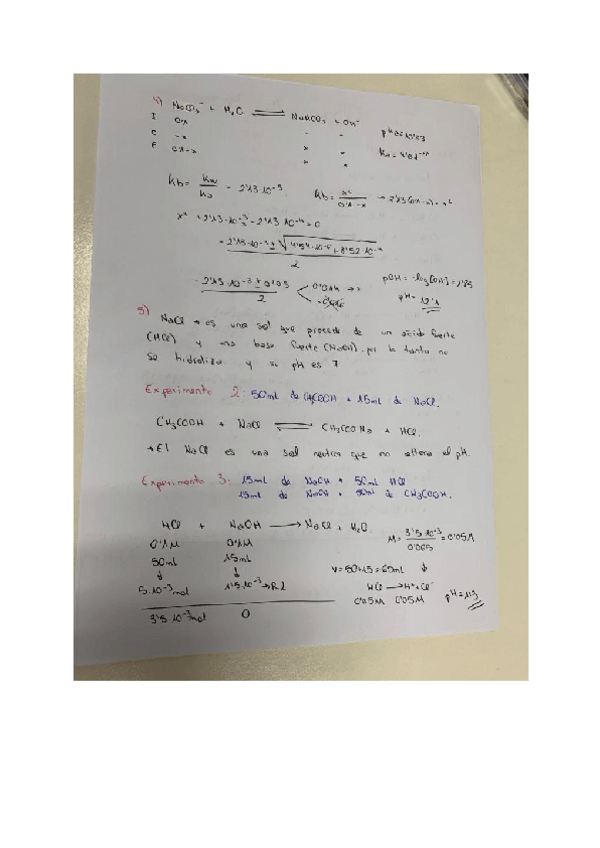 4) NaCO3⁻ + H2O ⇌ NaHCO3 + OH⁻
I 0'1 - -
C -x x x
F 0'1-x x x
Kb = Kw/Ka = 2'13·10⁻³ Kb = x²/0'1-x → 2'13(0'1-x) = x²
x² + 2'13·10⁻³ - 2'13·10⁻⁴ = 0
= -2'13·10⁻³ ± √4'54·10⁻⁶ + 8'52·10⁻⁴ / 2
-2'13·10⁻³ ± 0'03 / 2 0'014 → x pOH = -log[OH⁻] = 1'85
pH = 12'1
5) NaCl → es una sal que procede de un ácido fuerte
(HCl) y una base fuerte (NaOH), por lo tanto no
se hidroliza y su pH es 7
Experimento 2: 50ml de CH3COOH + 15ml de NaCl.
CH3COOH + NaCl ⇌ CH3COONa + HCl.
→ El NaCl es una sal neutra que no altera el pH.
Experimento 3: 15ml de NaOH + 50ml HCl
15ml de NaOH + 50ml de CH3COOH.
HCl + NaOH → NaCl + H2O
0'1M 0'1M M = 3'5·10⁻³/0'065 = 0'05M
50ml 15ml V = 50+15 = 65ml ↓
↓ ↓
5·10⁻³mol 1'5·10⁻³ → RL HCl → H⁺ + Cl⁻
0'05M 0'05M pH = 1'3
3'5·10⁻³mol 0